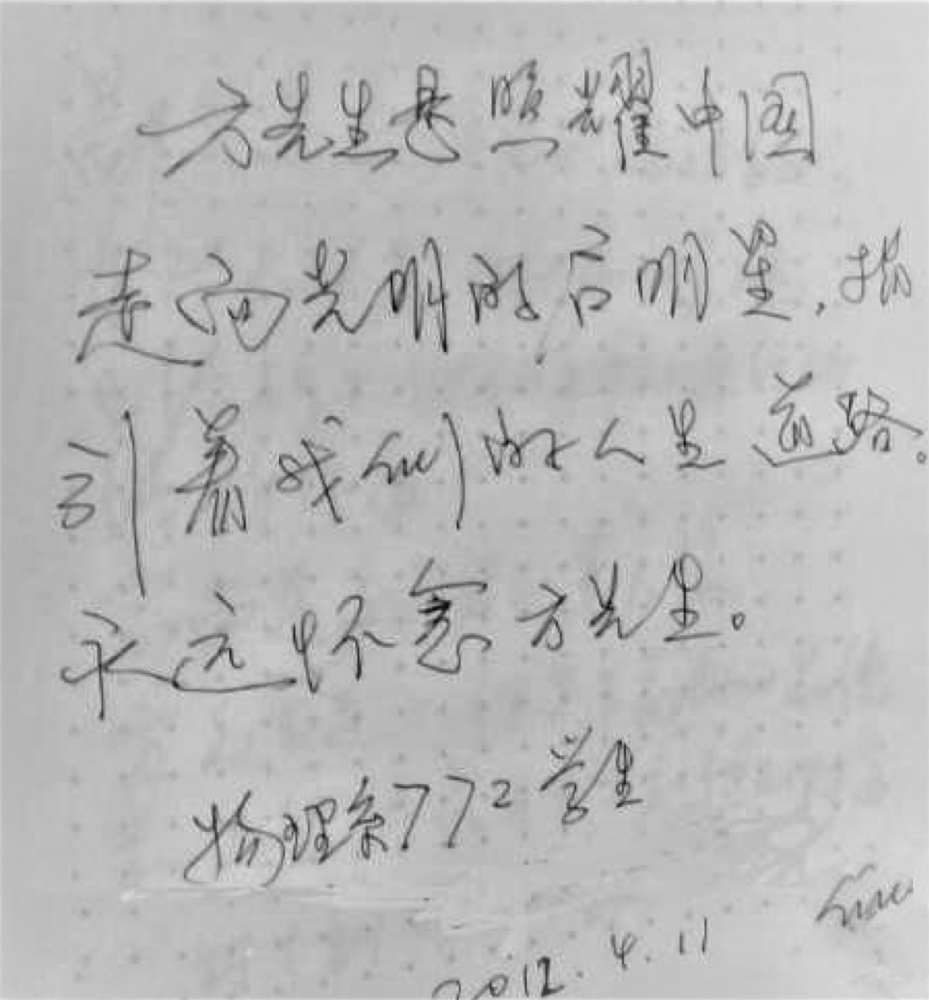 方先生是照耀中国
走向光明的启明星,指
引着我们的人生道路。
永远怀念方先生。
物理系772学生
2012.4.11